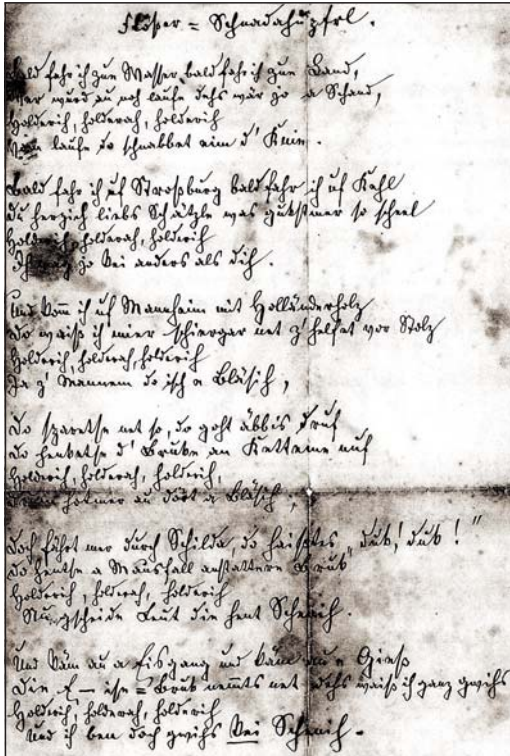 Flößer = Schnadahüpfrl.
Bald fahr ich zun Wasser, bald fahr ich zun Land,
wär au noch laufe dehs wär jo a Schand,
Holderich, holderah, holderich
laufe do schnabbet eim d' Knie.
Bald fahr ich uf Stroßburg bald fahr ich uf Kehl
Du herzich liebs Schätzle was gukstmer so scheel
Holderich, holderah, holderich
jo kei anders als dih.
Und komm ich uf Mannheim mit Holländerholz
Do waiß ich mier schiergar net z' helfet vor Stolz
Holderich, holderah, holderich
Ja z' Mannem do isch a Bläsih,
Do sparetse net so, do goht äbbis druf
Do henketse d' Bruke an Ketteme uf
Holderich, holderah, holderich,
hotmer au dort a Bläsih,
Doch fährt mer durch Schilda, do haißtes „duk, duk!"
Do hentse a Maushall anstattere Bruk
Holderich, holderah, holderich
Nu gscheide Leut die hent Schenih.
Und käm au a Eisgang und käm au a Gieß
Die E – ise = Bruk nemmts net dehs waiß ich ganz gwihs
Holderich, holderah, holderich
Und ich ben doch gwihs kei Schenih.